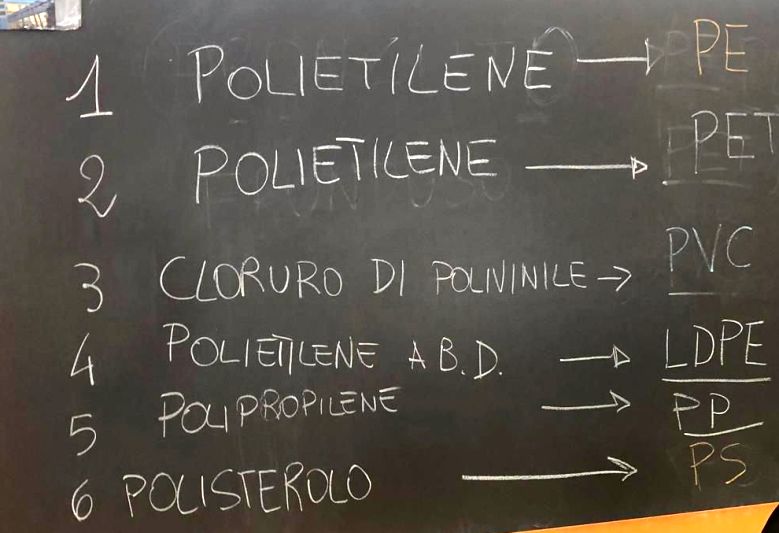 1 POLIETILENE → PE
2 POLIETILENE → PET
3 CLORURO DI POLIVINILE → PVC
4 POLIETILENE A B.D. → LDPE
5 POLIPROPILENE → PP
6 POLISTEROLO → PS